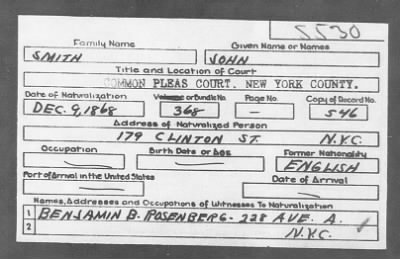 S530
Family Name Given Name or Names
SMITH JOHN
Title and Location of Court
COMMON PLEAS COURT. NEW YORK COUNTY.
Date of Naturalization Volume or Bundle No. Page No. Copy of Record No.
DEC. 9, 1868 368 — 546
Address of Naturalized Person
179 CLINTON ST. N.Y.C.
Occupation Birth Date or Age Former Nationality
— — ENGLISH
Port of Arrival in the United States Date of Arrival
— —
Names, Addresses and Occupations of Witnesses To Naturalization
1 BENJAMIN B. ROSENBERG - 228 AVE. A.
2 N.Y.C.